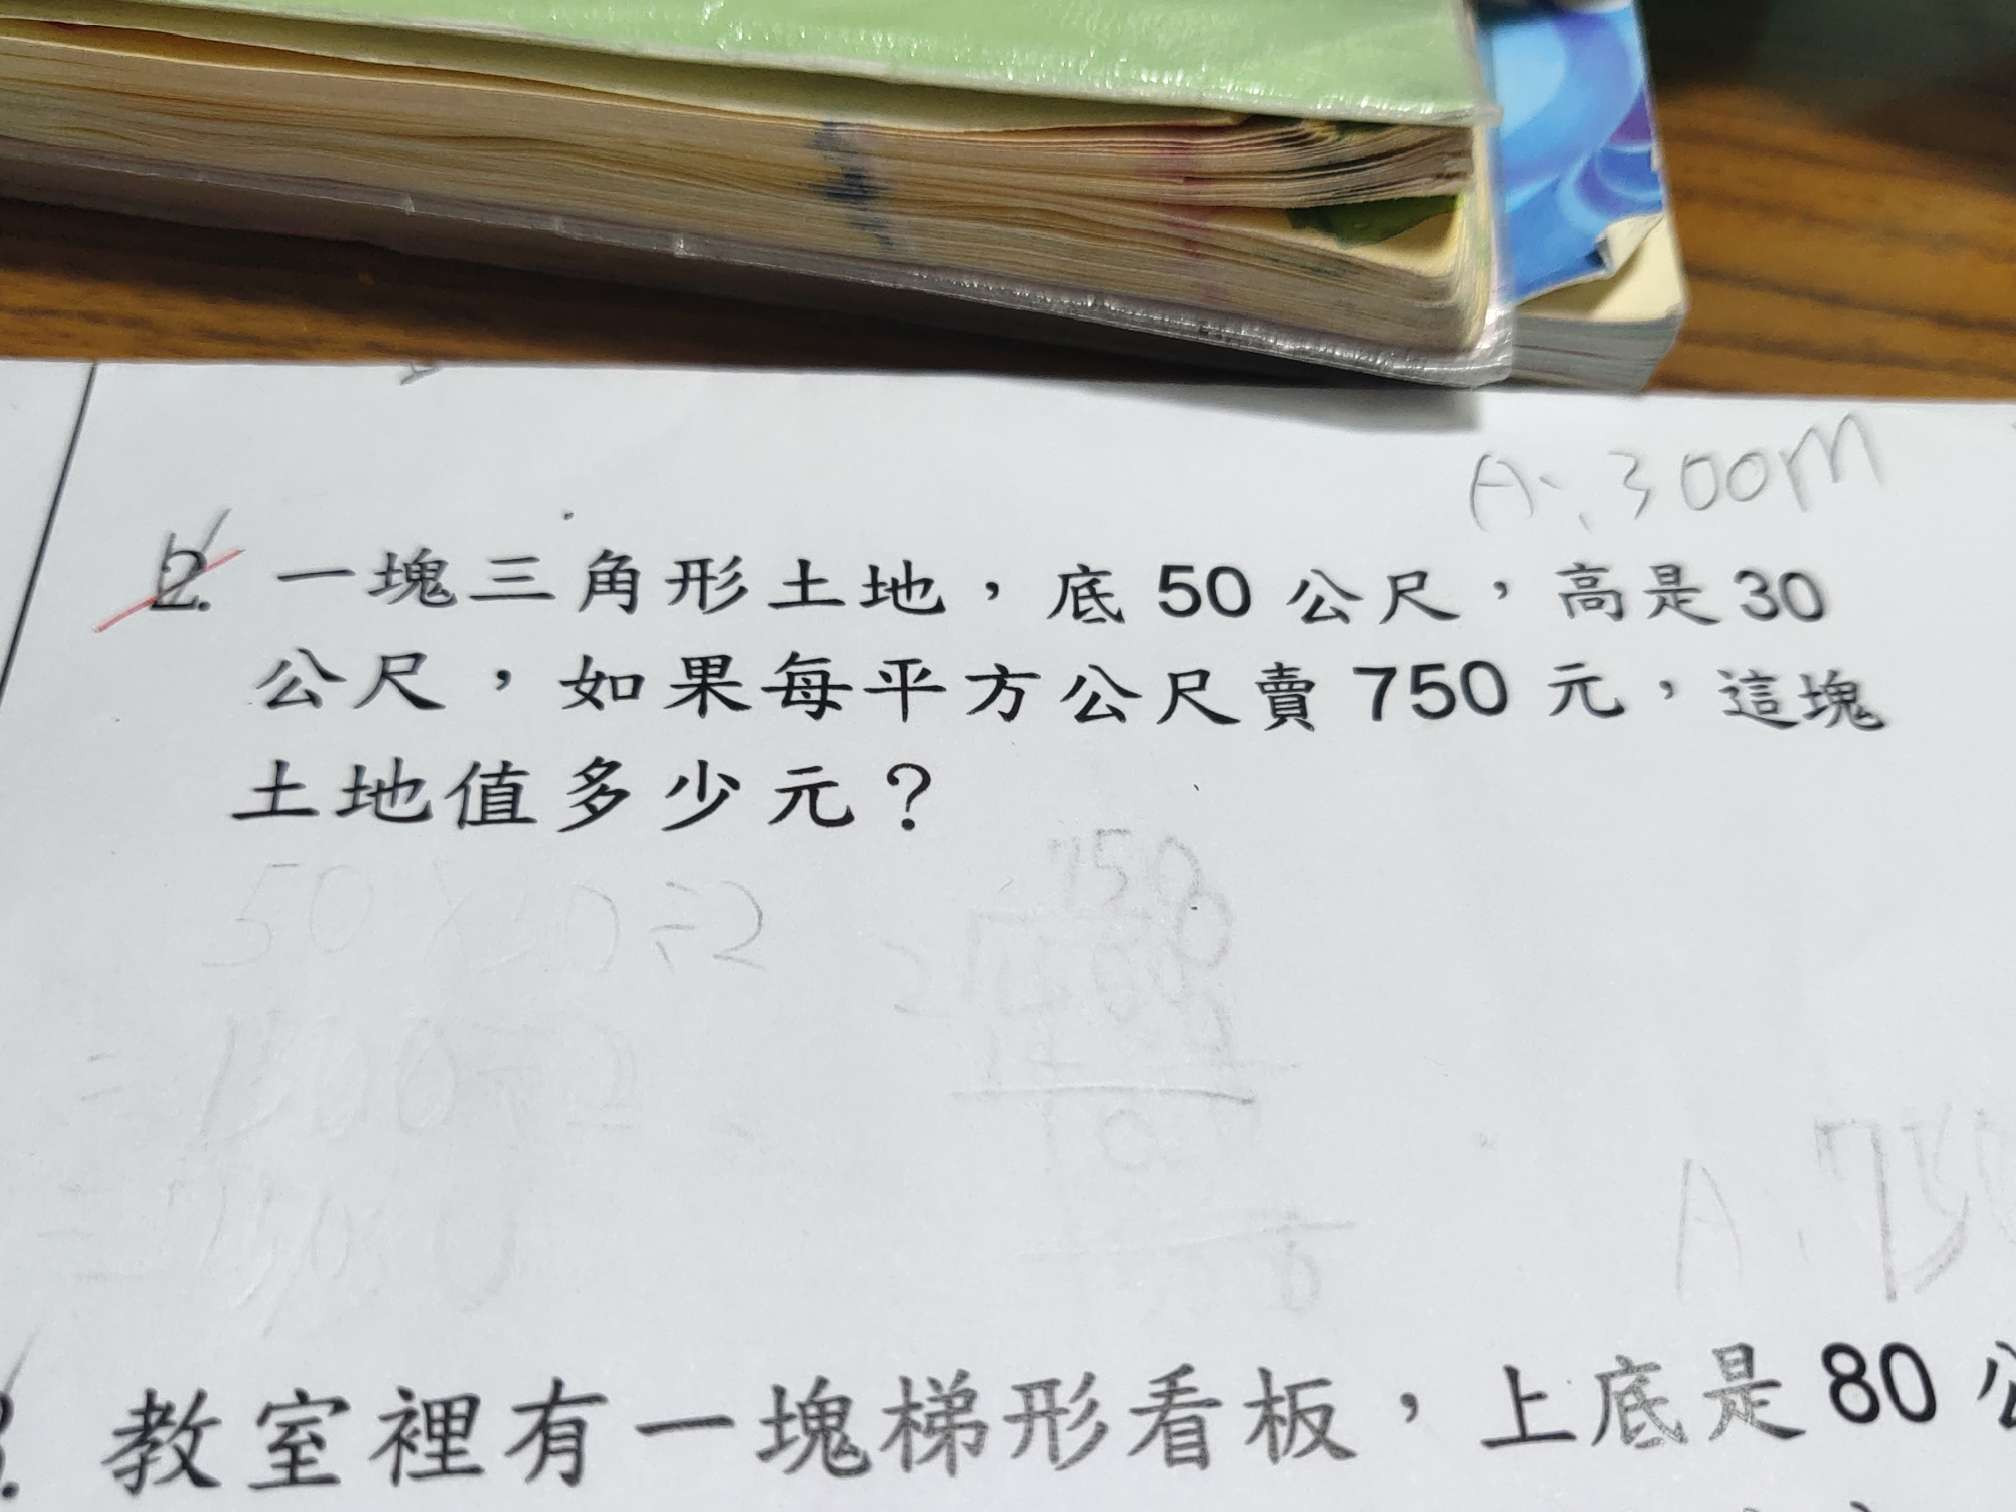 A:300m
2. 一塊三角形土地，底 50 公尺，高是 30
公尺，如果每平方公尺賣 750 元，這塊
土地值多少元？
50×30÷2
=1500÷2
750
A:750
教室裡有一塊梯形看板，上底是 80 公